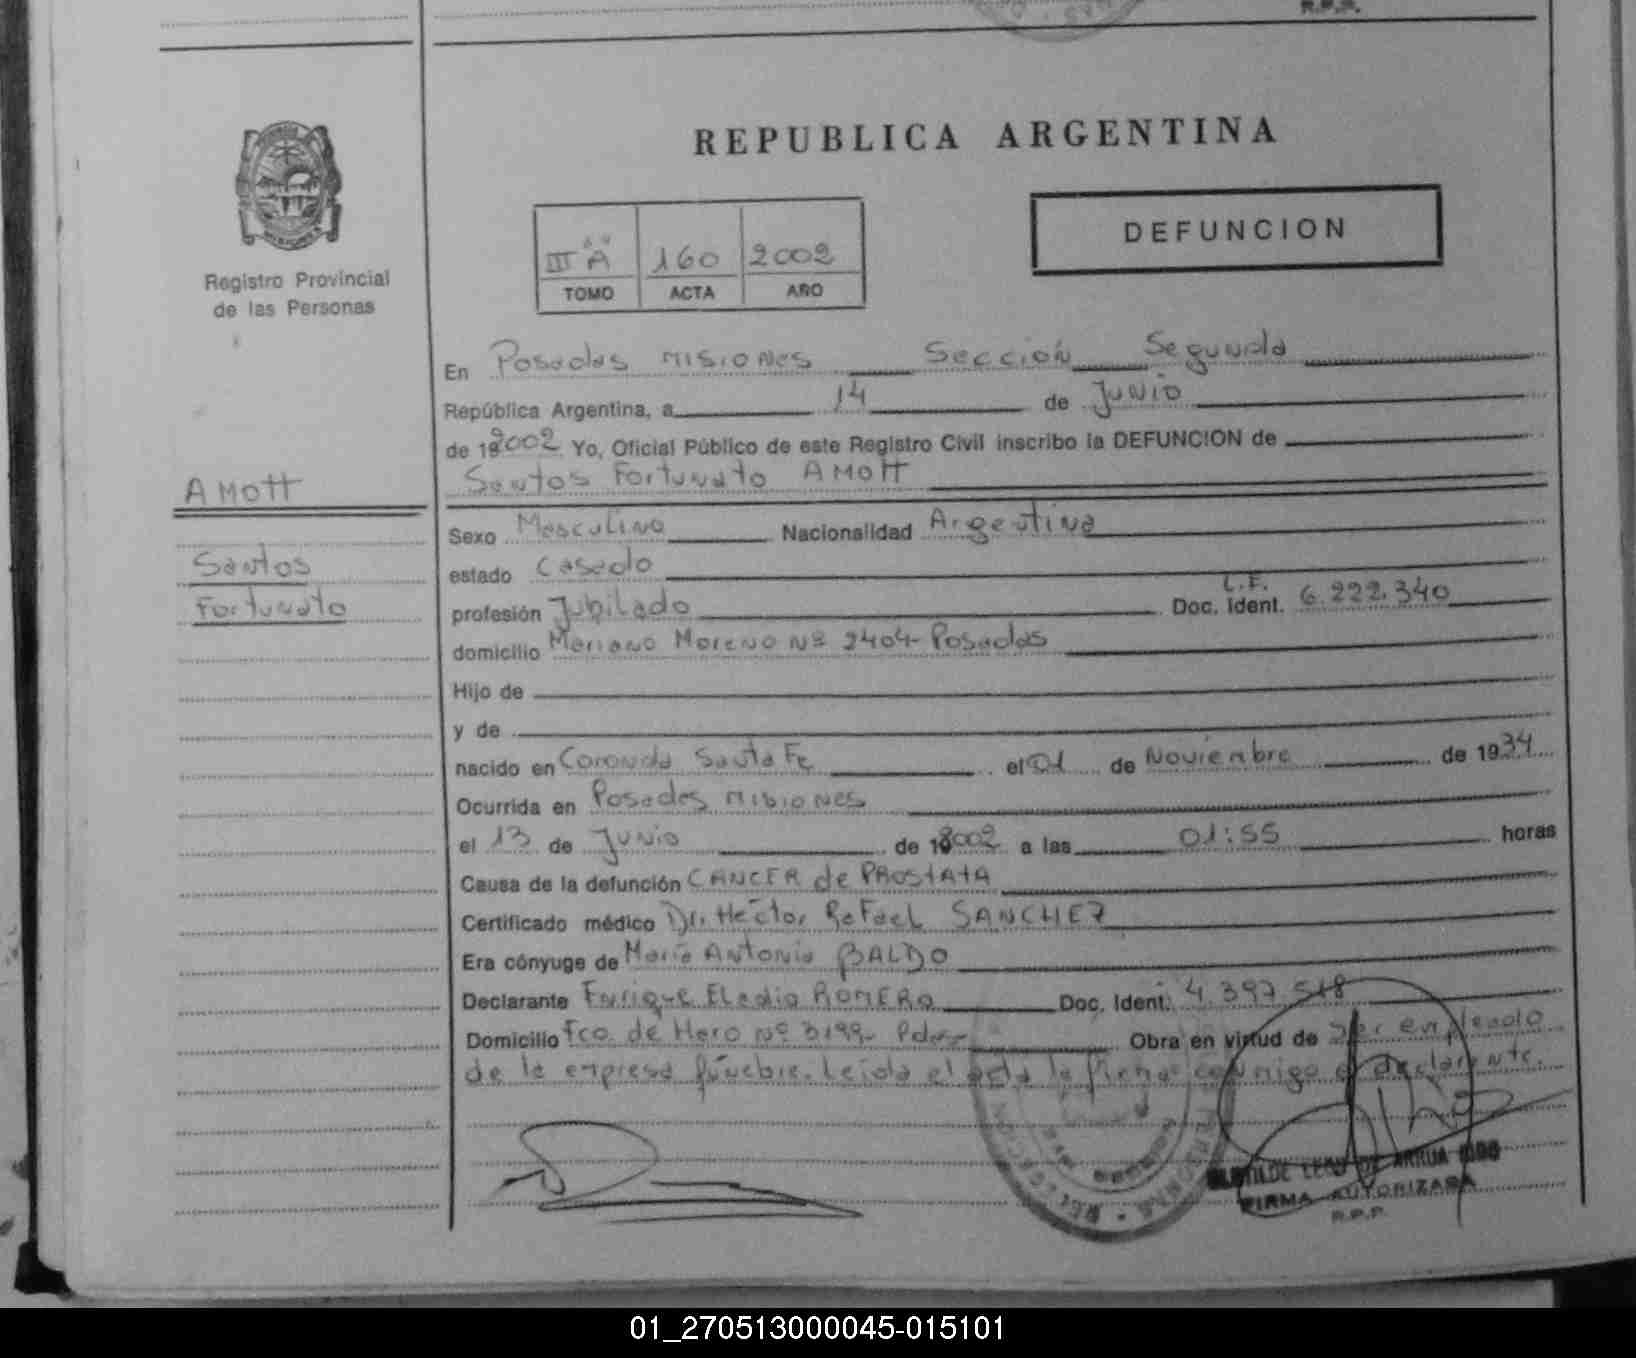 R.P.P.
REPUBLICA ARGENTINA
DEFUNCION
III "A" 160 2002
TOMO ACTA AÑO
Registro Provincial
de las Personas
En Posadas Misiones Sección Segunda
República Argentina, a 14 de Junio
de 192002 Yo, Oficial Público de este Registro Civil inscribo la DEFUNCION de
Santos Fortunato AMOTT
AMOTT
Santos
Fortunato
Sexo Masculino Nacionalidad Argentina
estado Casado
profesión Jubilado Doc. Ident. L.E. 6.222.340
domicilio Mariano Moreno Nº 2404- Posadas
Hijo de
y de
nacido en Coronda Santa Fe el 01 de Noviembre de 1934
Ocurrida en Posadas Misiones
el 13 de Junio de 192002 a las 01:55 horas
Causa de la defunción CANCER de PROSTATA
Certificado médico Dr. Héctor Rafael SANCHEZ
Era cónyuge de María Antonia BALDO
Declarante Enrique Eladio ROMERO Doc. Ident. 4.397.518
Domicilio Fco. de Haro Nº 3199- Pdas- Obra en virtud de ser empleado
de la empresa fúnebre. Leída el acta la firma conmigo el declarante.
DE ARRUA
FIRMA AUTORIZADA
R.P.P.
01_270513000045-015101